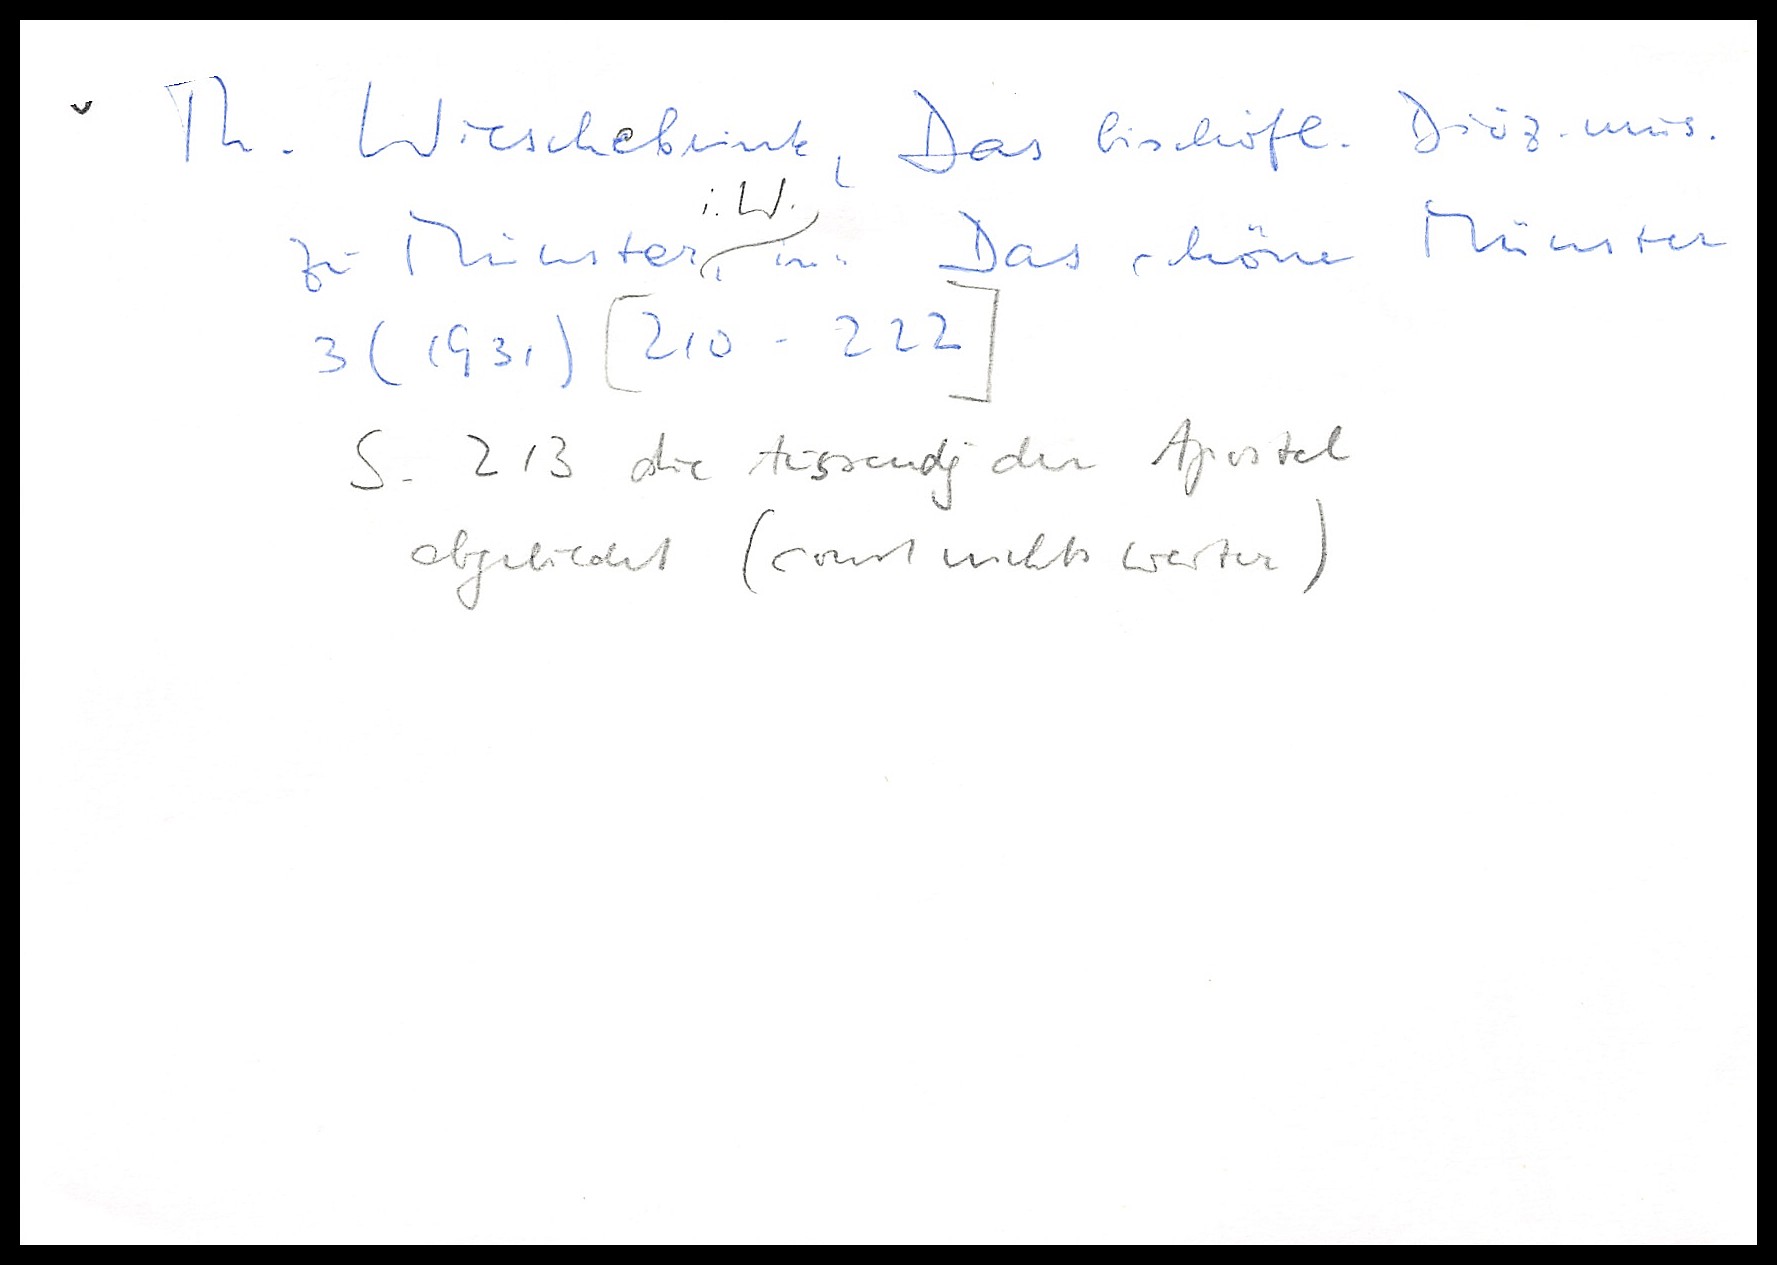 Th. Wieschebrink, Das bischöfl. Diöz.mus.
i. W.
zu Münster, in: Das schöne Münster
3 (1931) [210 - 222]
S. 213 die Aussendg der Apostel
abgebildet (sonst nichts weiter)